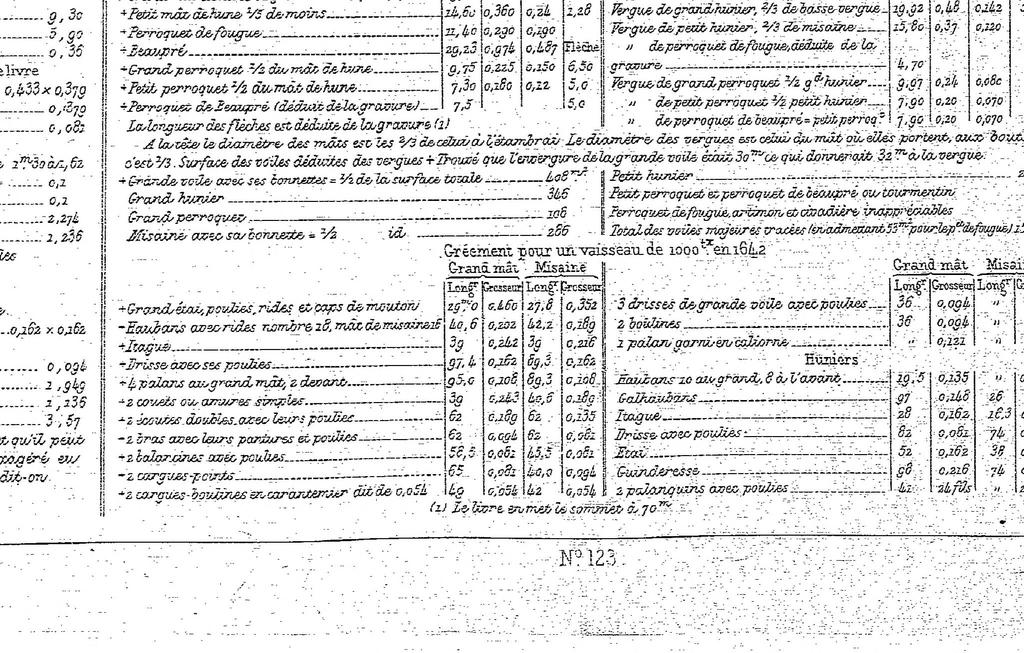 9,30
5,90
0,36
e livre
0,433 x 0,379
0,379
0,081
1m30 à 1,62
0,1
0,1
2,274
1,236
0,162 x 0,162
0,094
1,949
1,136
3,57
t qu'il peut
xagéré en
dit-on
+Petit mât de hune 2/5 de moins 14,60 0,360 0,24 1,28
+Perroquet de fougue 11,40 0,290 0,190
+Beaupré 29,23 0,974 0,487 Flèche
+Grand perroquet 1/2 du mât de hune 9,75 0,225 0,150 6,50
+Petit perroquet 1/2 du mât de hune 7,30 0,180 0,12 5,0
+Perroquet de Beaupré (déduit de la gravure) 7,5 5,0
La longueur des flèches est déduite de la gravure (1)
Vergue de grand hunier, 2/3 de basse vergue 19,92 0,48 0,142
Vergue de petit hunier, 2/3 de misaine 15,80 0,37 0,120
" de perroquet de fougue, déduite de la
gravure 4,70
Vergue de grand perroquet 1/2 gd hunier 9,97 0,24 0,080
" de petit perroquet 1/2 petit hunier 7,90 0,20 0,070
" de perroquet de beaupré = petit perroqt 7,90 0,20 0,070
A la tête le diamètre des mâts est les 2/3 de celui à l'étambrai. Le diamètre des vergues est celui du mât où elles portent, aux bout
c'est 1/3. Surface des voiles déduites des vergues + Trouvé que l'envergure de la grande voile était 30m ce qui donnerait 32m à la vergue.
+Grande voile avec ses bonnettes = 1/2 de la surface totale 408mq
Grand hunier 346
Grand perroquet 108
Misaine avec sa bonnette = 1/2 id 286
Petit hunier
Petit perroquet et perroquet de beaupré ou tourmentin
Perroquet de fougue, artimon et civadière inappréciables
Total des voiles majeures tracées (en admettant 53mq pour le pet de fougue)
Gréement pour un vaisseau de 1000tx en 1642
Grand mât Misaine
Longr Grosseur Longr Grosseur
+Grand étai, poulies, rides et caps de mouton 29m0 0,460 27,8 0,352
-Haubans avec rides nombre 18, mât de misaine 16 40,6 0,202 42,2 0,189
+Itague 39 0,242 39 0,216
+Drisse avec ses poulies 97,4 0,162 89,3 0,162
+4 palans au grand mât, 2 devant 95,0 0,108 89,3 0,108
+2 couets ou amures simples 39 0,243 40,6 0,189
+2 écoutes doubles, avec leurs poulies 62 0,189 62 0,135
-2 bras avec leurs pantures et poulies 62 0,094 62 0,081
+2 balancines avec poulies 58,5 0,081 45,5 0,081
-2 cargues-points 65 0,081 40,0 0,094
+2 cargues-boulines en carantenier dit de 0,054 49 0,054 42 0,054
Grand mât Misai
Longr Grosseur Longr
3 drisses de grande voile avec poulies 36 0,094 "
2 boulines 36 0,094 "
1 palan garni en caliorne " 0,121 "
Huniers
Haubans 10 au grand, 8 à l'avant 19,5 0,135 "
Galhaubans 97 0,148 26
Itague 28 0,162 16,3
Drisse avec poulies 82 0,081 74
Etai 52 0,162 38
Guinderesse 98 0,216 74
2 palanquins avec poulies 41 24 fils "
(1) Le livre en met le sommet à 70m
No 123